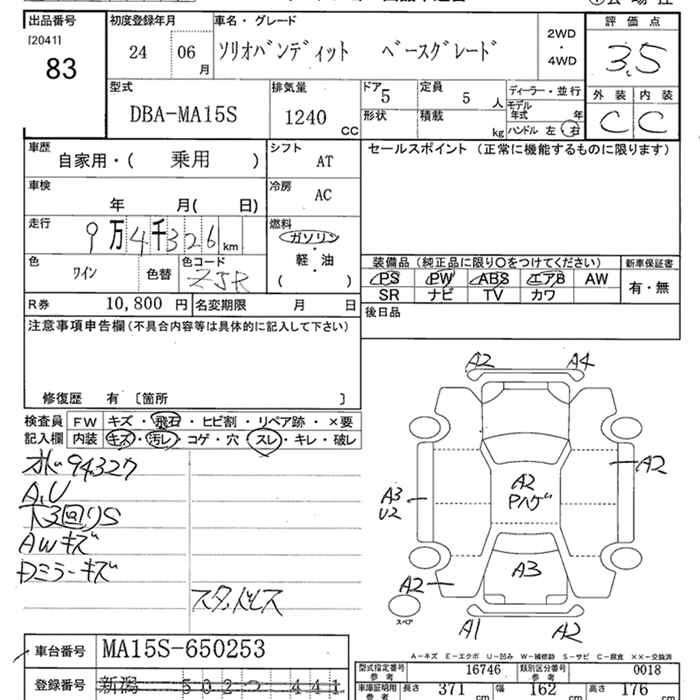 出品番号 初度登録年月 車名・グレード 評価点
[2041] 83
24 06 月
ソリオバンディット ベースグレード
2WD・4WD
3.5
型式 DBA-MA15S
排気量 1240 CC
ドア 5 定員 5 人
形状 積載 kg
ディーラー・並行
モデル年式 年
ハンドル 左・右
外装 内装
C C
車歴 自家用・( 乗用 )
シフト AT
セールスポイント (正常に機能するものに限ります)
車検 年 月( 日)
冷房 AC
走行 9万4千326 km
燃料 ガソリン・軽・油 ( )
色 ワイン 色替 色コード ZJR
装備品 (純正品に限り○をつけてください) 新車保証書
PS PW ABS エアB AW 有・無
SR ナビ TV カワ
R券 10,800 円 名変期限 月 日
後日品
注意事項申告欄(不具合内容等は具体的に記入して下さい)
修復歴 有 〔箇所 〕
検査員記入欄
FW キズ・飛石・ヒビ割・リペア跡・×要
内装 キズ・汚レ・コゲ・穴・スレ・キレ・破レ
94327
A,U
下3回りS
AWキズ
Dミラーキズ
スタッドレス
A2 A4
A2
A3 U2
A2
A3
A2
A1 A2
スペア
A-キズ E-エクボ U-凹み W-補修跡 S-サビ C-腐食 ××-交換済
車台番号 MA15S-650253
登録番号 新潟
型式指定番号 参考 16746 類別区分番号 参考 0018
車庫証明用 参考 長さ 371 cm 幅 162 cm 高さ 176 cm